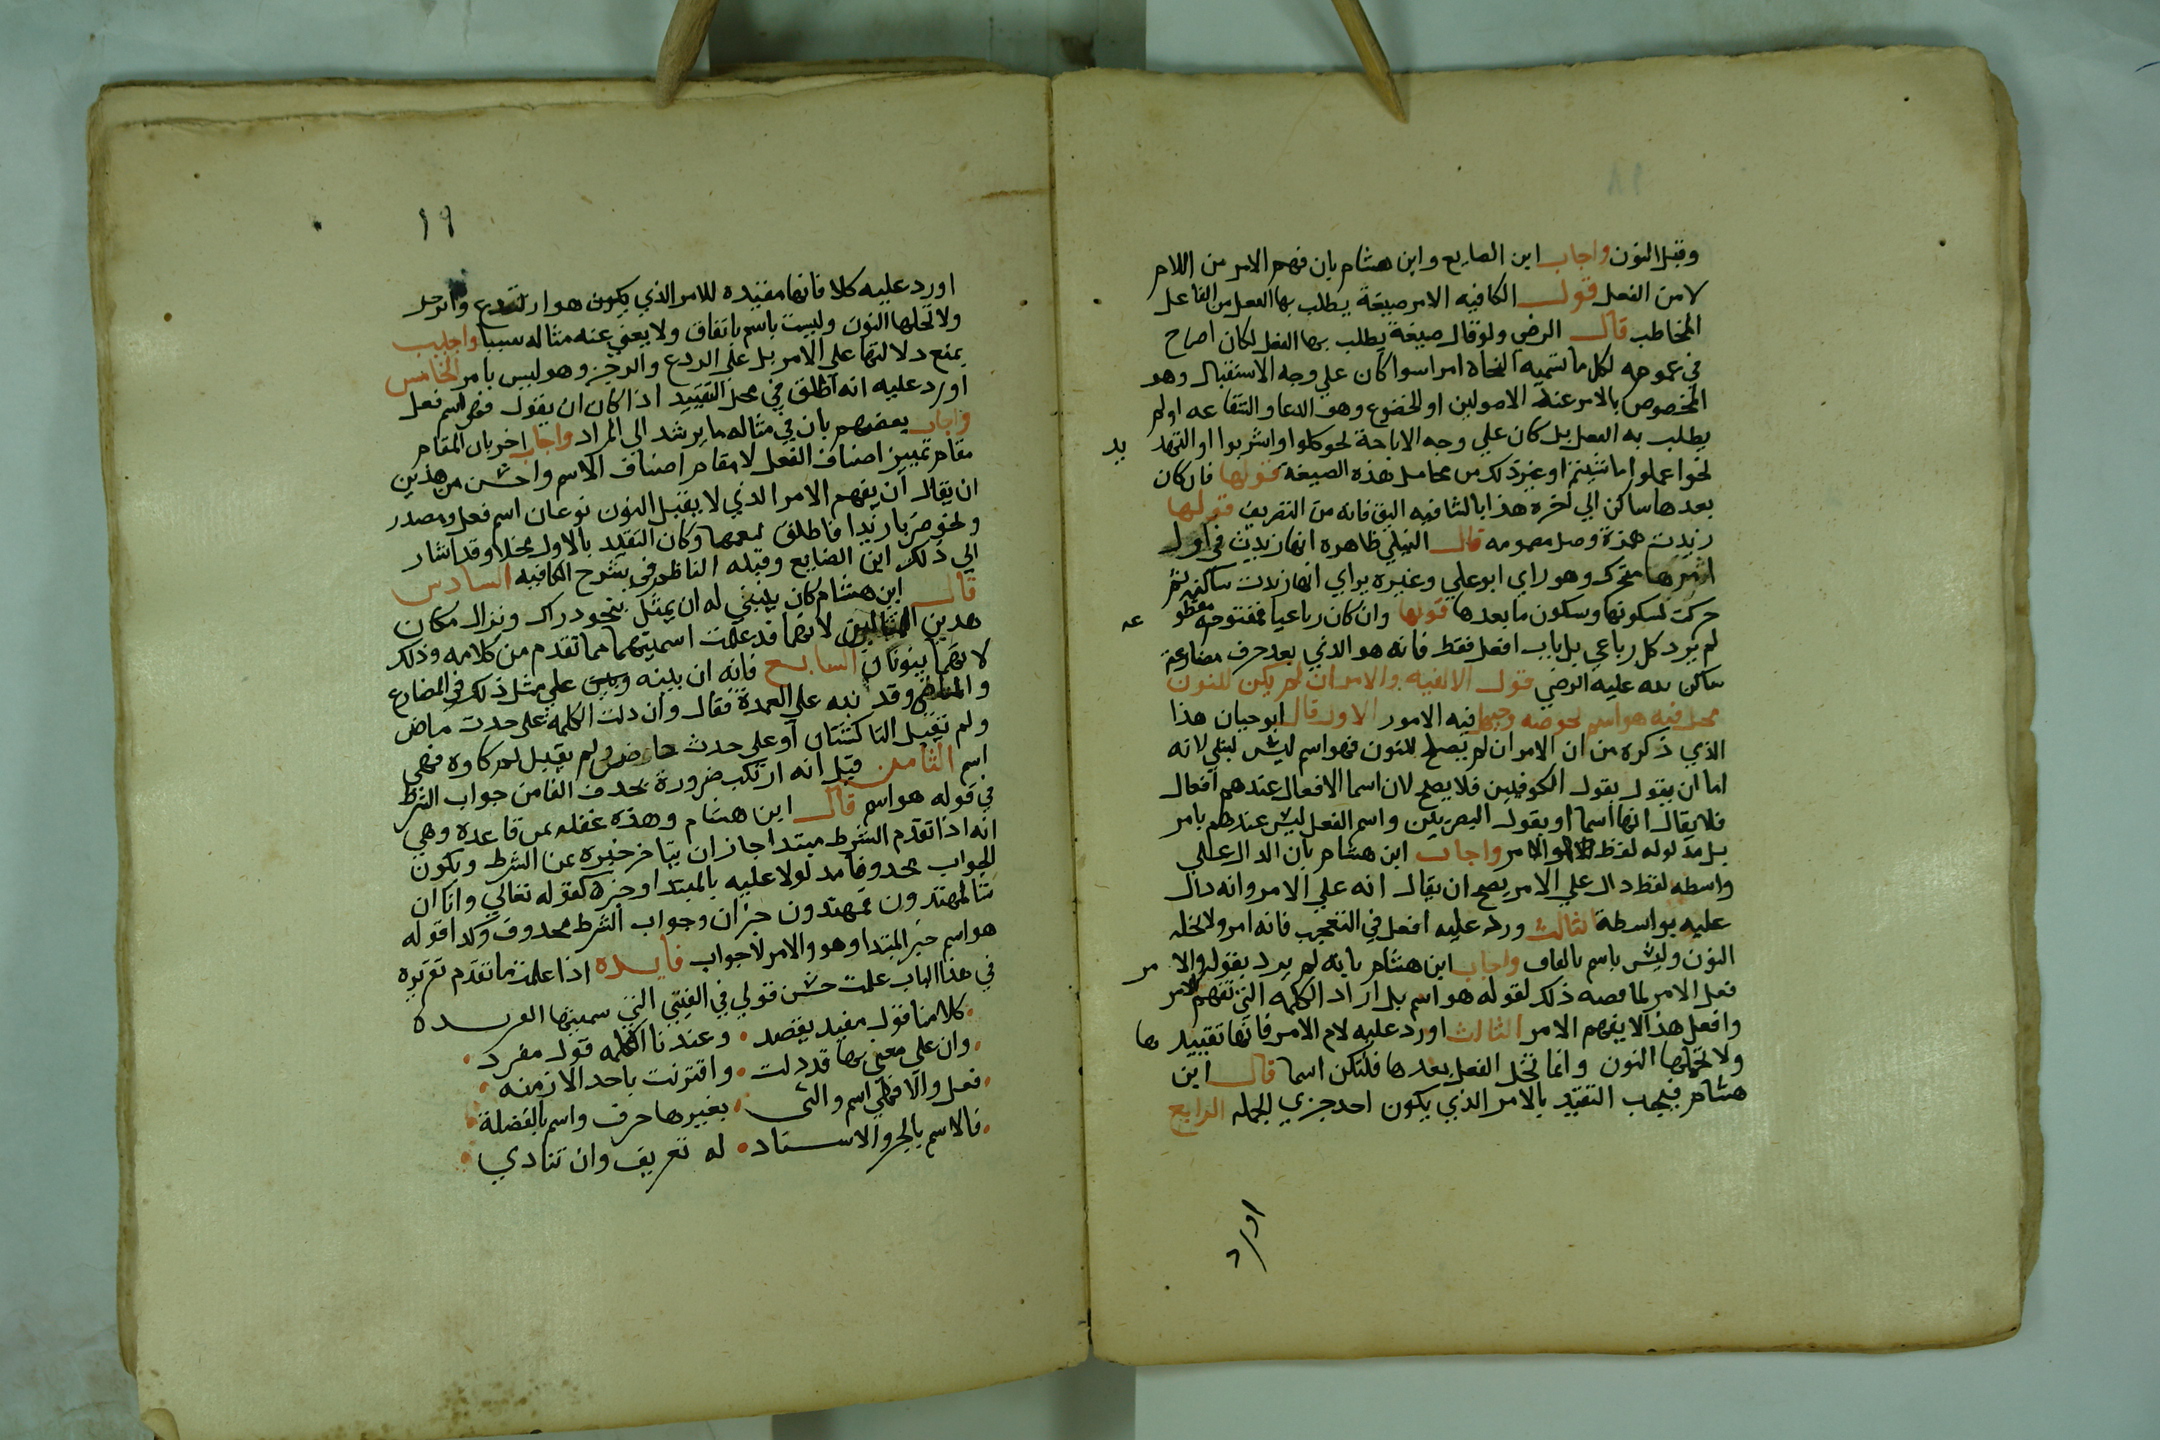 وقبل النون واجاب ابن الصايع وابن هشام بان فهم الامر من اللام
لا من الفعل قول الكافيه الامر صيغة يطلب بها الفعل من الفاعل
المخاطب قال الرضي ولو قال صيغة يطلب بها الفعل لكان اصرح
في عمومه لكل ما تسميه النحاة امرا سوا كان علي وجه الاستقبال وهو
المخصوص بالامر عند الاصولين او الخضوع وهو الدعا والشفاعه او لم
يطلب به الفعل بل كان علي وجه الاباحة نحو كلوا واشربوا او التهد
يد
نحو اعملوا ما شيتم او غير ذلك من محامل هذه الصيغة قولها فان كان
بعدها ساكن الي اخره هذا بالشافيه اليق فانه من التصريف قولها
زيدت همزة وصل مضمومه قال النيلي ظاهره انها زيدت في اول
امرها متحركة وهو راي ابو علي وغيره يراي انها زيدت ساكنه ثم
حركت لسكونها وسكون ما بعدها قولها وان كان رباعيا فمفتوحة مقطو
عه
لم يرد كل رباعي بل باب افعل فقط فانه هو الذي بعد حرف مضارعة
ساكن نبه عليه الرضي قول الالفيه والامر ان لم يكن للنون
محل فيه هو اسم نحو صه وحيهل فيه الامور الاول قال ابو حيان هذا
الذي ذكره من ان الامر ان لم يصلح للنون فهو اسم ليس لبتلي لانه
اما ان يقول بقول الكوفيين فلا يصح لان اسما الافعال عندهم افعال
فلا يقال انها اسما او يقول البصريين واسم الفعل ليس عندهم بامر
بل مدلوله لفظ الامر واجاب ابن هشام بان الدال علي
واسطه لفظ دال علي الامر يصح ان يقال انه علي الامر وانه دال
عليه بواسطة الثالث ورد عليه افعل في التعجب فانه امر ولا تخله
النون وليس باسم باتفاق واجاب ابن هشام بانه لم يرد بقوله والا
مر
فعل الامر لما قصه ذلك لقوله هو اسم بل اراد الكلمه التي تفهم الامر
وافعل هذا لا يفهم الامر الثالث اورد عليه لام الامر فانها تقييد
ها
ولا تحلها النون وانما تحل الفعل بعدها فلتكن اسما قال ابن
هشام فيجب التقييد بالامر الذي يكون احد جزي الجمله الرابع
اورد
١٩
اورد عليه كلا فانها مفيده للامر الذي يكون هو ارتدع وانزجر
ولا تحلها النون وليست باسم باتفاق ولا يغني عنه مثاله سببا واجيب
يمنع دلالتها علي الامر بل علي الردع والزجر وهو ليس بامر الخامس
اورد عليه انه اطلق في محل التقييد اذ كان ان يقول فهو اسم فعل
واجاب بعضهم بان في مثاله ما يرشد الي المراد واجاب اخر بان المقام
مقام تمييز اصناف الفعل لا مقام اصناف الاسم واحسن من هذين
ان يقال ان يفهم الامر الذي لا يقبل النون نوعان اسم فعل ومصدر
ونحو ضربا زيدا فاطلق ليعمها وكان التقييد بالاول مخلا وقد اشار
الي ذلك ابن الصايع وقبله الناظم في شرح الكافيه السادس
قال ابن هشام كان ينبغي له ان يمثل بنحو دراك ونزال مكان
هذين المثالين لانهما قد علمت اسميتهما مما تقدم من كلامه وذلك
لانهما ينونان السابع فانه ان بينه وبين علي مثل ذلك في المضارع
والماضي وقد نبه علي العمدة فقال وان دلت الكلمه علي حدث ماض
ولم تقبل التا كشتان او علي حدث حاضر ولم يقبل لم كاوه فهي
اسم الثامن قيل انه ارتكب ضرورة بحذف الفا من جواب الشرط
في قوله هو اسم قال ابن هشام وهذه غفله عن قاعدة وهي
انه اذا تقدم الشرط مبتدا جاز ان يتاخر خبره عن الشرط ويكون
الجواب محدوفا مدلولا عليه بالمبتدا وخبره كقوله تعالي وانا ان
شا الله لمهتدون فمهتدون خبر ان وجواب الشرط محدوف وكذا قوله
هو اسم خبر المبتدا وهو والامر لا جواب فايده اذا علمت ما تقدم تقريره
في هذا الباب علمت حسن قولي في الفيتي التي سميتها الفريده
كلامنا قول مفيد يقصد وعندنا الكلمه قول مفرد
وان علي معني بها قد دلت واقترنت باحد الازمنه
فعل والا فهي اسم والتي بغيرها حرف واسم بالفضلة
فالاسم بالجر والاسناد له تعريف وان تنادي